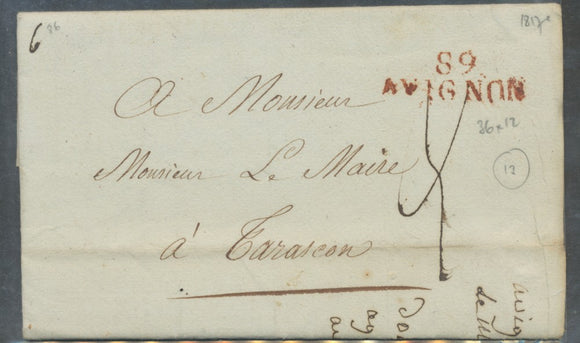 6
36
1817
89
AVIGNON
A Monsieur
36x12
Monsieur Le Maire
12
à Tarascon
avig